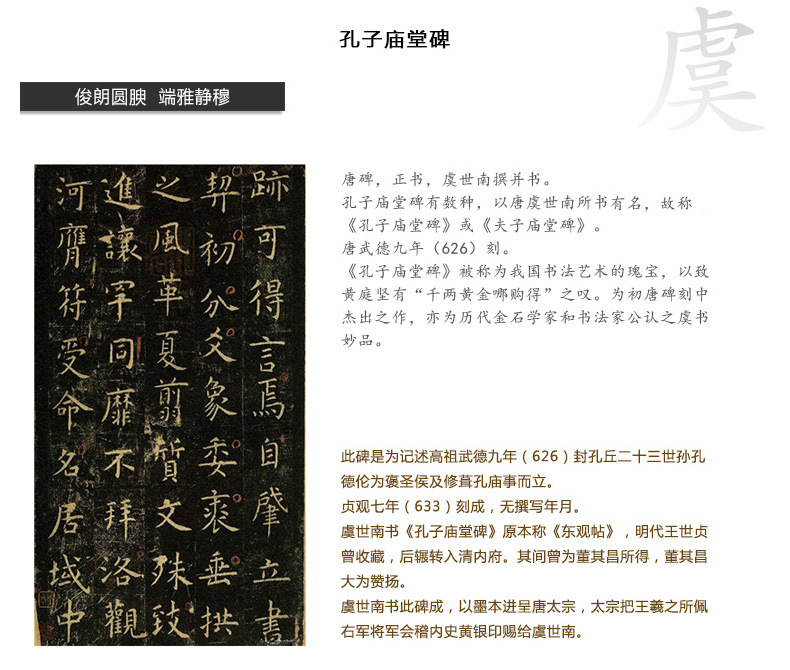 孔子庙堂碑
虞
俊朗圆腴 端雅静穆
跡可得言焉自肇立書
契初分爻象委裘垂拱
之風革夏翦質文殊致
進讓罕同靡不拜洛觀
河膺符受命名居域中
唐碑，正书，虞世南撰并书。
孔子庙堂碑有数种，以唐虞世南所书有名，故称
《孔子庙堂碑》或《夫子庙堂碑》。
唐武德九年（626）刻。
《孔子庙堂碑》被称为我国书法艺术的瑰宝，以致
黄庭坚有“千两黄金哪购得”之叹。为初唐碑刻中
杰出之作，亦为历代金石学家和书法家公认之虞书
妙品。
此碑是为记述高祖武德九年（626）封孔丘二十三世孙孔
德伦为褒圣侯及修葺孔庙事而立。
贞观七年（633）刻成，无撰写年月。
虞世南书《孔子庙堂碑》原本称《东观帖》，明代王世贞
曾收藏，后辗转入清内府。其间曾为董其昌所得，董其昌
大为赞扬。
虞世南书此碑成，以墨本进呈唐太宗，太宗把王羲之所佩
右军将军会稽内史黄银印赐给虞世南。